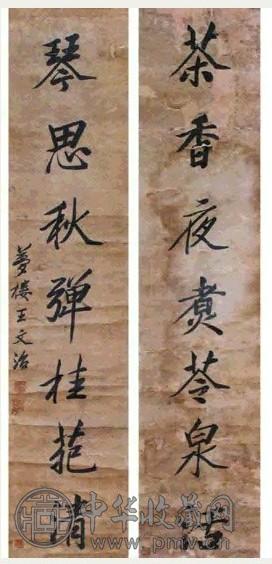 茶香夜煮苓泉活
琴思秋弹桂苑清
梦楼王文治
中华收藏网
www.pmv.cn